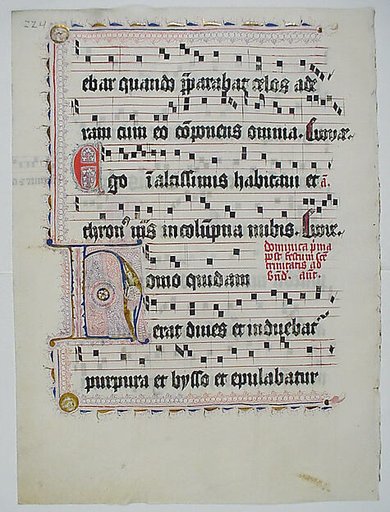 224
ebar quando p̄parabat celos ade
ram cum eo cōponens omnia.
Ego ī altissimis habitaui et
thronꝰ in columpna nubis.
dominica
post festum
trinitatis ad
Omo quidam
erat diues et induebat
purpura et bysso et epulabatur